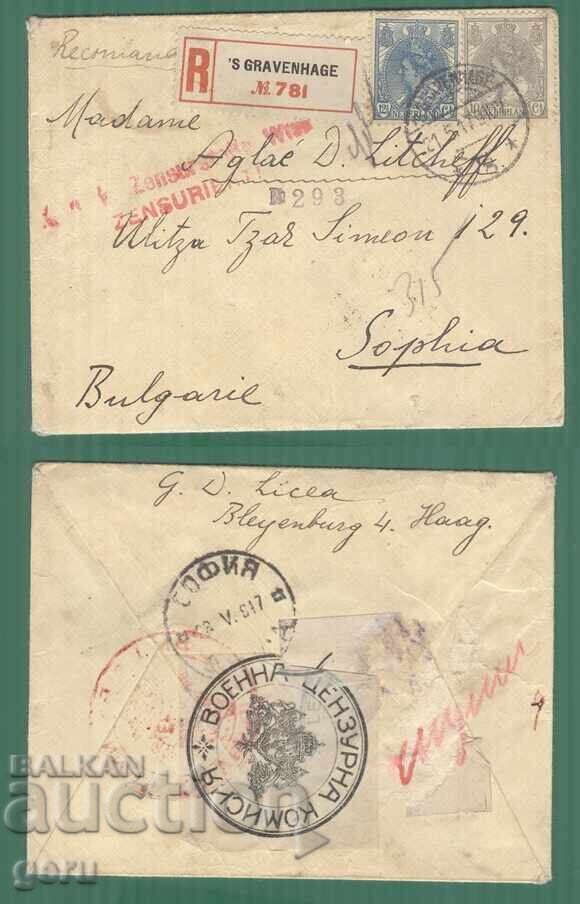 R 'S GRAVENHAGE
№. 781
12½ Ct NEDERLAND Ct
10 Ct NEDERLAND Ct
Madame
Aglaé D. Litcheff
Zensurstelle Wien
ZENSURIERT
293
Ulitza Tzar Simeon 129.
315
Sophia
Bulgarie
G. D. Licea
Bleyenburg 4. Haag.
СОФИЯ
ВОЕННА ЦЕНЗУРНА КОМИСИЯ
BALKAN
auction
goru